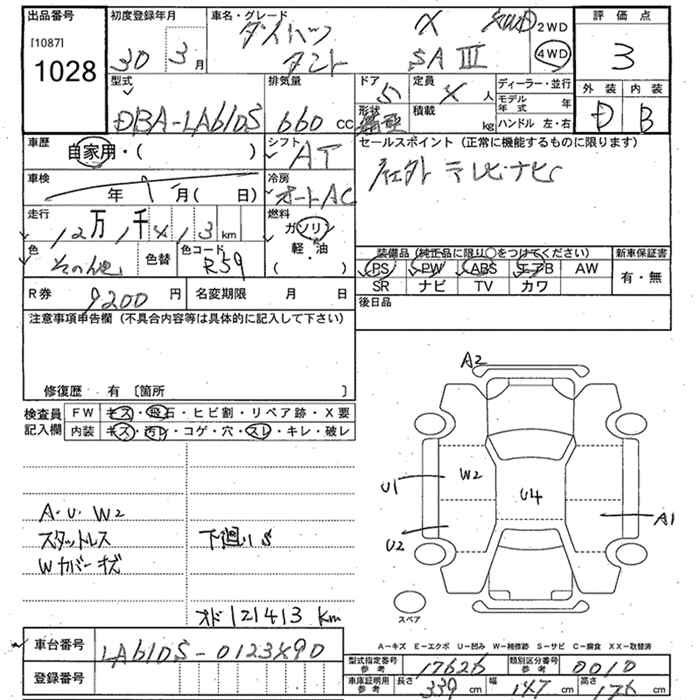 出品番号 初度登録年月 車名・グレード 評価点
[1087] ダイハツ X 4WD 2WD
1028 30年 3月 タント SAⅢ 4WD 3
型式 排気量 ドア 定員 ディーラー・並行 外装 内装
DBA-LA610S 660cc 5 4人 モデル年式 年 D B
形状 積載 kg ハンドル 左・右
車歴 自家用・( ) シフト AT セールスポイント (正常に機能するものに限ります)
車検 年 月( 日) 冷房 オートAC 社外 テレビ・ナビ
走行 12万1千413km 燃料 ガソリン
軽・油
( )
色 その他 色替 色コード R59 装備品 (純正品に限り○をつけてください) 新車保証書
PS PW ABS エアB AW 有・無
SR ナビ TV カワ
R券 9200円 名変期限 月 日 後日品
注意事項申告欄 (不具合内容等は具体的に記入して下さい)
修復歴 有 [箇所 ]
検査員 FW キズ・飛石・ヒビ割・リペア跡・X要
記入欄 内装 キズ・汚レ・コゲ・穴・スレ・キレ・破レ
A2
U1 W2 U4 A1
U2
A・U・W2
スタットレス 下廻りS
Wカバーキズ
オド 121413 km
スペア
A-キズ E-エクボ U-凹み W-補修跡 S-サビ C-腐食 XX-取替済
車台番号 LA610S-0123X90
登録番号
型式指定番号 参考 17626 類別区分番号 参考 0010
車庫証明用 参考 長さ 339cm 幅 147cm 高さ 175cm